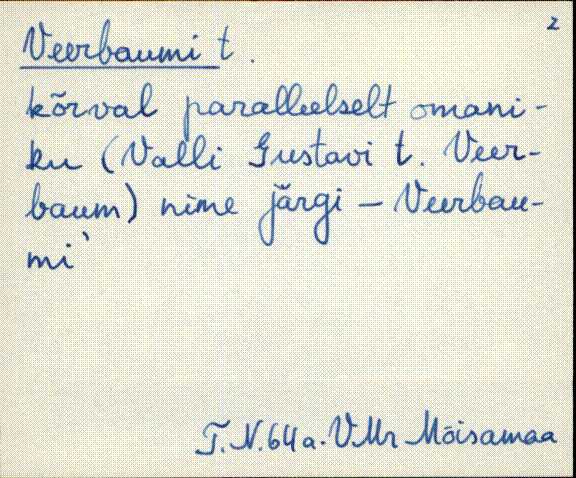 2
Veerbaumi t.
kõrval paralleelselt omani-
ku (Valli Gustavi t. Veer-
baum) nime järgi – Veerbau-
mi`
T.N.64a. VMr Mõisamaa